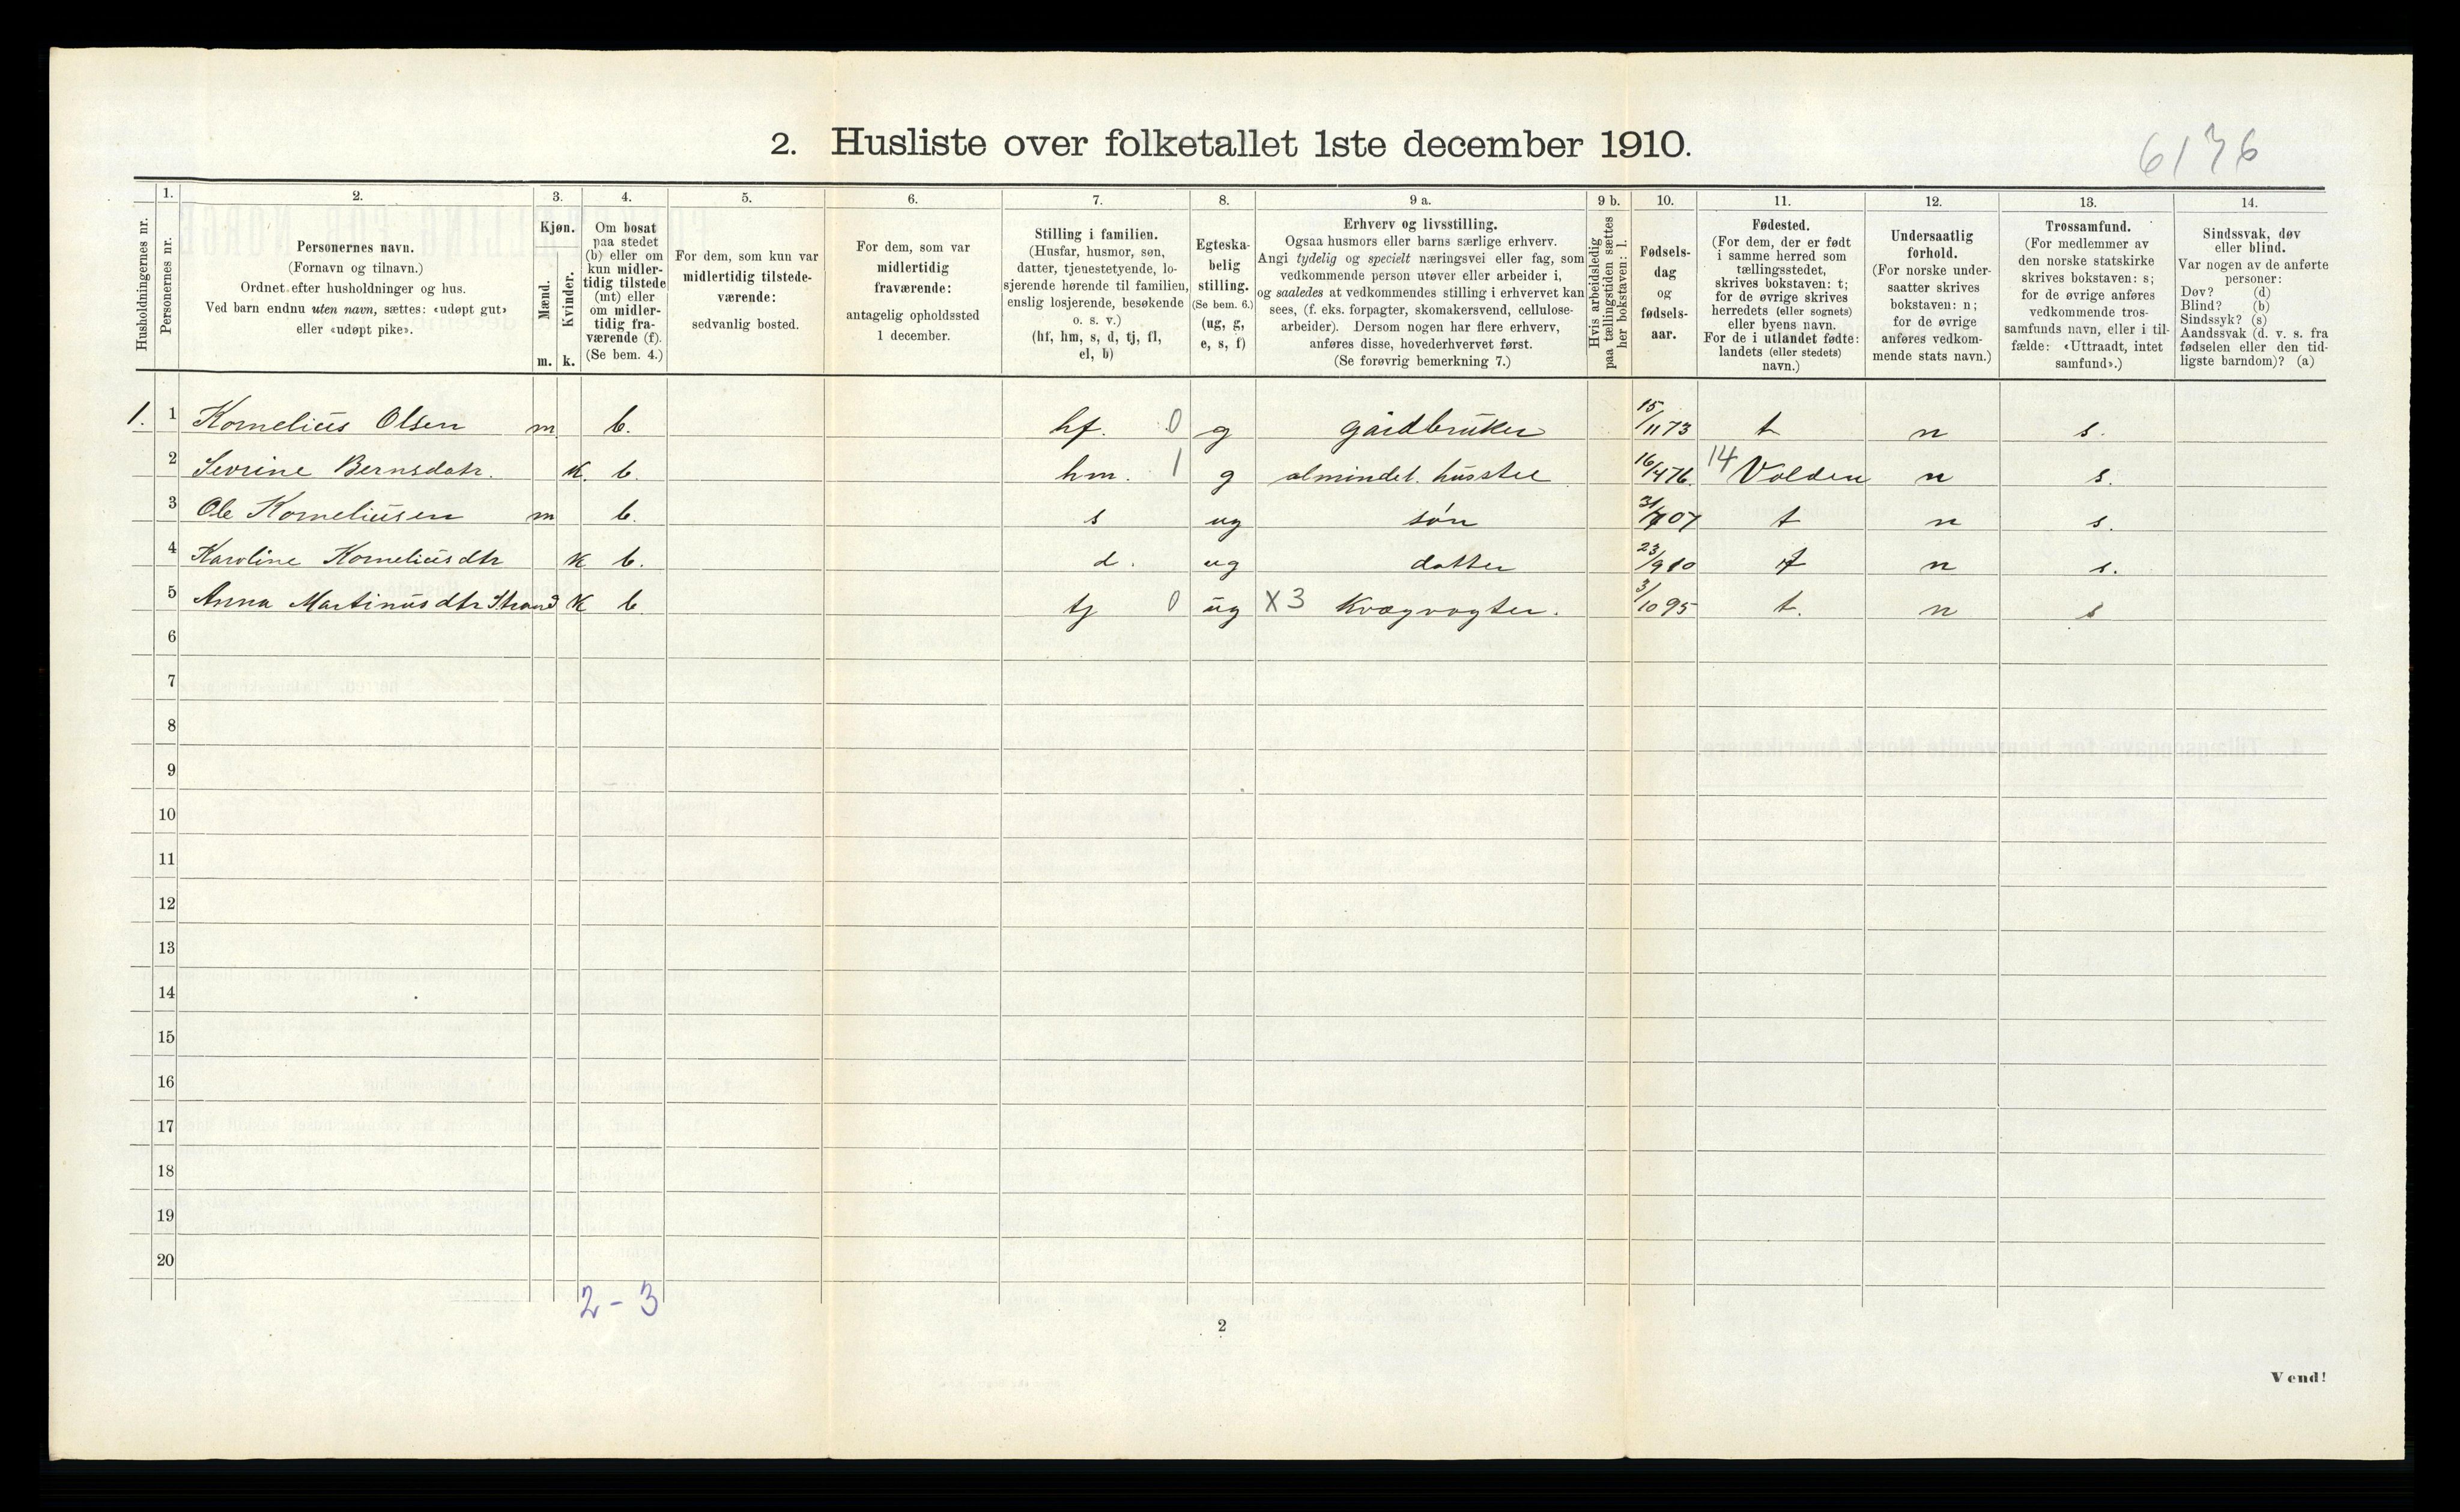 2. Husliste over folketallet 1ste december 1910.
6176
Husholdningernes nr.
1.
Personernes nr.
2.
Personernes navn.
(Fornavn og tilnavn.)
Ordnet efter husholdninger og hus.
Ved barn endnu uten navn, sættes: «udøpt gut»
eller «udøpt pike».
3.
Kjøn.
Mænd.
Kvinder.
m. k.
4.
Om bosat
paa stedet
(b) eller om
kun midler-
tidig tilstede
(mt) eller
om midler-
tidig fra-
værende (f).
(Se bem. 4.)
5.
For dem, som kun var
midlertidig tilstede-
værende:
sedvanlig bosted.
6.
For dem, som var
midlertidig
fraværende:
antagelig opholdssted
1 december.
7.
Stilling i familien.
(Husfar, husmor, søn,
datter, tjenestetyende, lo-
sjerende hørende til familien,
enslig losjerende, besøkende
o. s. v.)
(hf, hm, s, d, tj, fl,
el, b)
8.
Egteska-
belig
stilling.
(Se bem. 6.)
(ug, g,
e, s, f)
9 a.
Erhverv og livsstilling.
Ogsaa husmors eller barns særlige erhverv.
Angi tydelig og specielt næringsvei eller fag, som
vedkommende person utøver eller arbeider i,
og saaledes at vedkommendes stilling i erhvervet kan
sees, (f. eks. forpagter, skomakersvend, cellulose-
arbeider). Dersom nogen har flere erhverv,
anføres disse, hovederhvervet først.
(Se forøvrig bemerkning 7.)
9 b.
Hvis arbeidsledig
paa tællingstiden sættes
her bokstaven: l.
10.
Fødsels-
dag
og
fødsels-
aar.
11.
Fødested.
(For dem, der er født
i samme herred som
tællingsstedet,
skrives bokstaven: t;
for de øvrige skrives
herredets (eller sognets)
eller byens navn.
For de i utlandet fødte:
landets (eller stedets)
navn.)
12.
Undersaatlig
forhold.
(For norske under-
saatter skrives
bokstaven: n;
for de øvrige
anføres vedkom-
mende stats navn.)
13.
Trossamfund.
(For medlemmer av
den norske statskirke
skrives bokstaven: s;
for de øvrige anføres
vedkommende tros-
samfunds navn, eller i til-
fælde: «Uttraadt, intet
samfund».)
14.
Sindssvak, døv
eller blind.
Var nogen av de anførte
personer:
Døv? (d)
Blind? (b)
Sindssyk? (s)
Aandssvak (d. v. s. fra
fødselen eller den tid-
ligste barndom)? (a)
1. 1 Kornelius Olsen m b. hf. 0 g gårdbruker 15/11 73 t n s.
2 Sevrine Bernsdatr. k. b. hm. 1 g almindel. husstel 16/4 76. 14 Volden n s.
3 Ole Korneliusen m b. s ug søn 31/7 07 t n s.
4 Karoline Korneliusdtr k b. d. ug datter 23/9 10 t n s.
5 Anna Martinusdtr Strand k b. tj 0 ug X3 Kvægvogter. 3/10 95 t. n s
6
7
8
9
10
11
12
13
14
15
16
17
18
19
20
2 - 3
2
Vend!